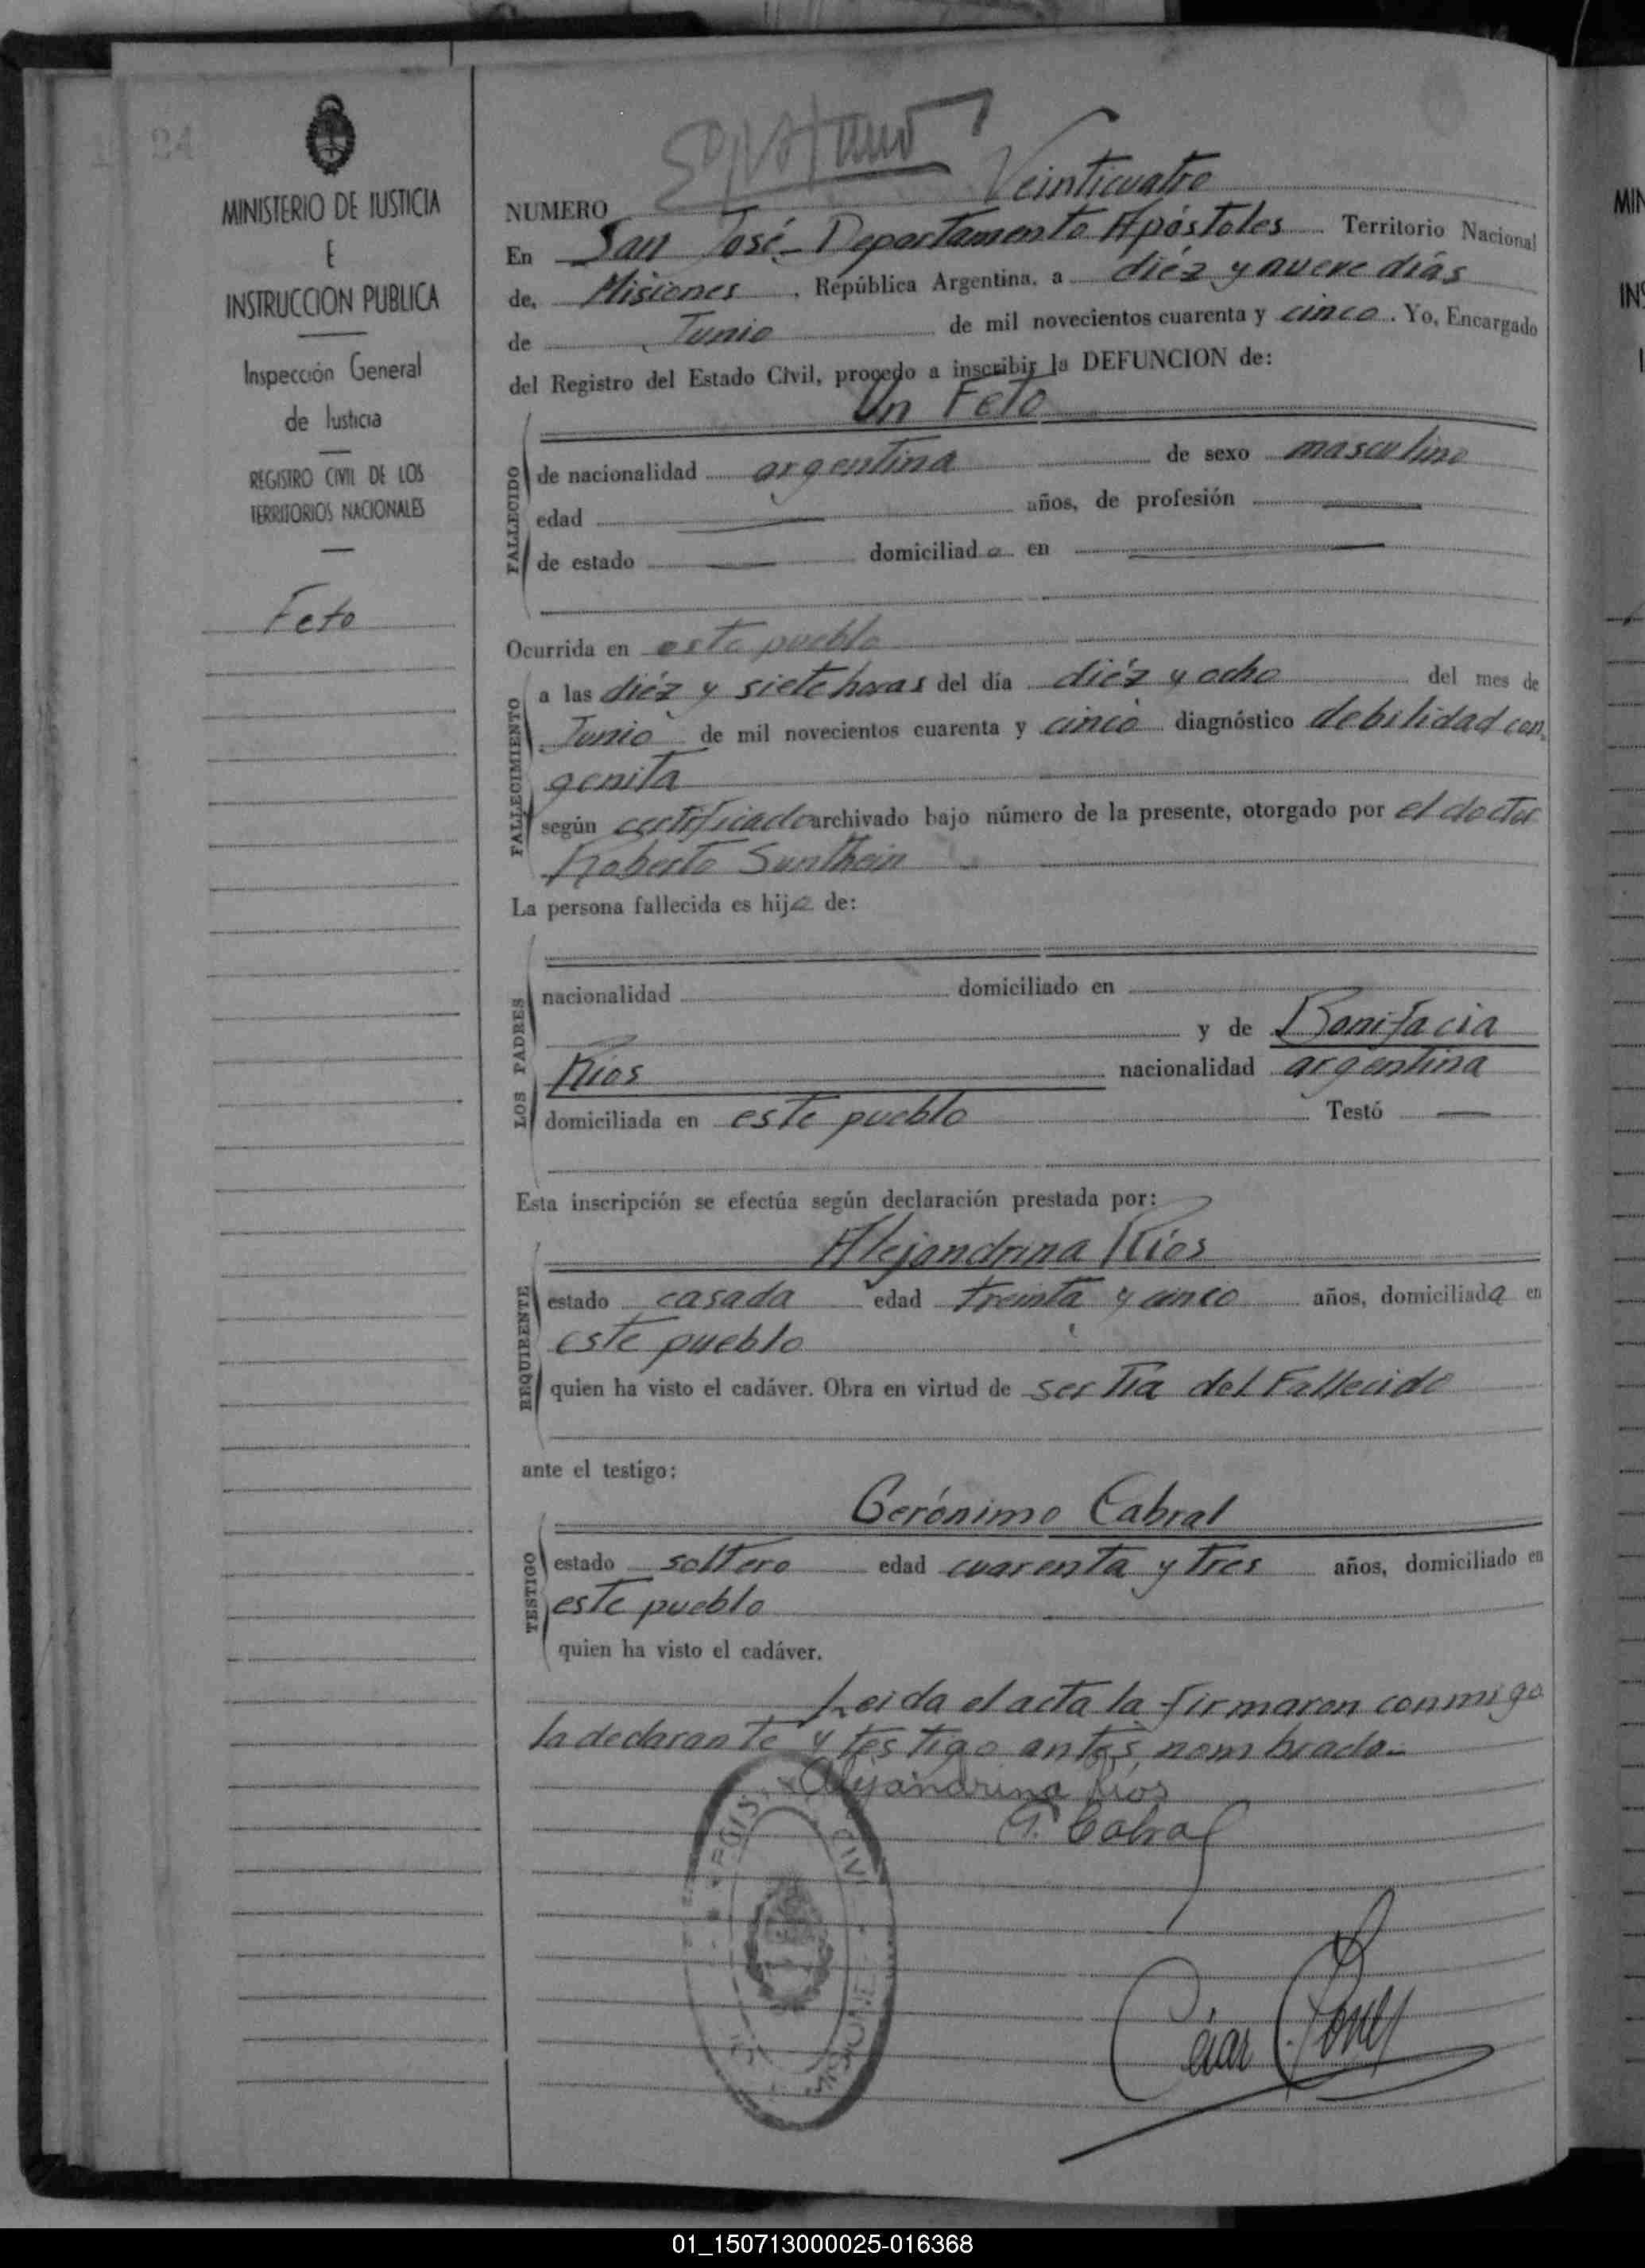 24
MINISTERIO DE JUSTICIA
E
INSTRUCCION PUBLICA
Inspección General
de Justicia
REGISTRO CIVIL DE LOS
TERRITORIOS NACIONALES
Feto
NUMERO Veinticuatro
En San José - Departamento Apóstoles Territorio Nacional
de, Misiones, República Argentina, a diéz y nueve días
de Junio de mil novecientos cuarenta y cinco. Yo, Encargado
del Registro del Estado Civil, procedo a inscribir la DEFUNCION de:
Un Feto
FALLECIDO
de nacionalidad argentina de sexo masculino
edad años, de profesión
de estado domiciliado en
Ocurrida en este pueblo
FALLECIMIENTO
a las diéz y siete horas del día diéz y ocho del mes de
Junio de mil novecientos cuarenta y cinco diagnóstico debilidad con
genita
según certificado archivado bajo número de la presente, otorgado por el doctor
Roberto Sunthein
La persona fallecida es hijo de:
LOS PADRES
nacionalidad domiciliado en
y de Bonifacia
Ríos nacionalidad argentina
domiciliada en este pueblo Testó
Esta inscripción se efectúa según declaración prestada por:
Alejandrina Ríos
REQUIRENTE
estado casada edad treinta y cinco años, domiciliada en
este pueblo
quien ha visto el cadáver. Obra en virtud de ser Tia del Fallecido
ante el testigo:
Gerónimo Cabral
TESTIGO
estado soltero edad cuarenta y tres años, domiciliado en
este pueblo
quien ha visto el cadáver.
Leida el acta la firmaron conmigo
la declarante y testigo antes nombrado.-
Alejandrina Ríos
G. Cabral
César
MISIONE
01_150713000025-016368